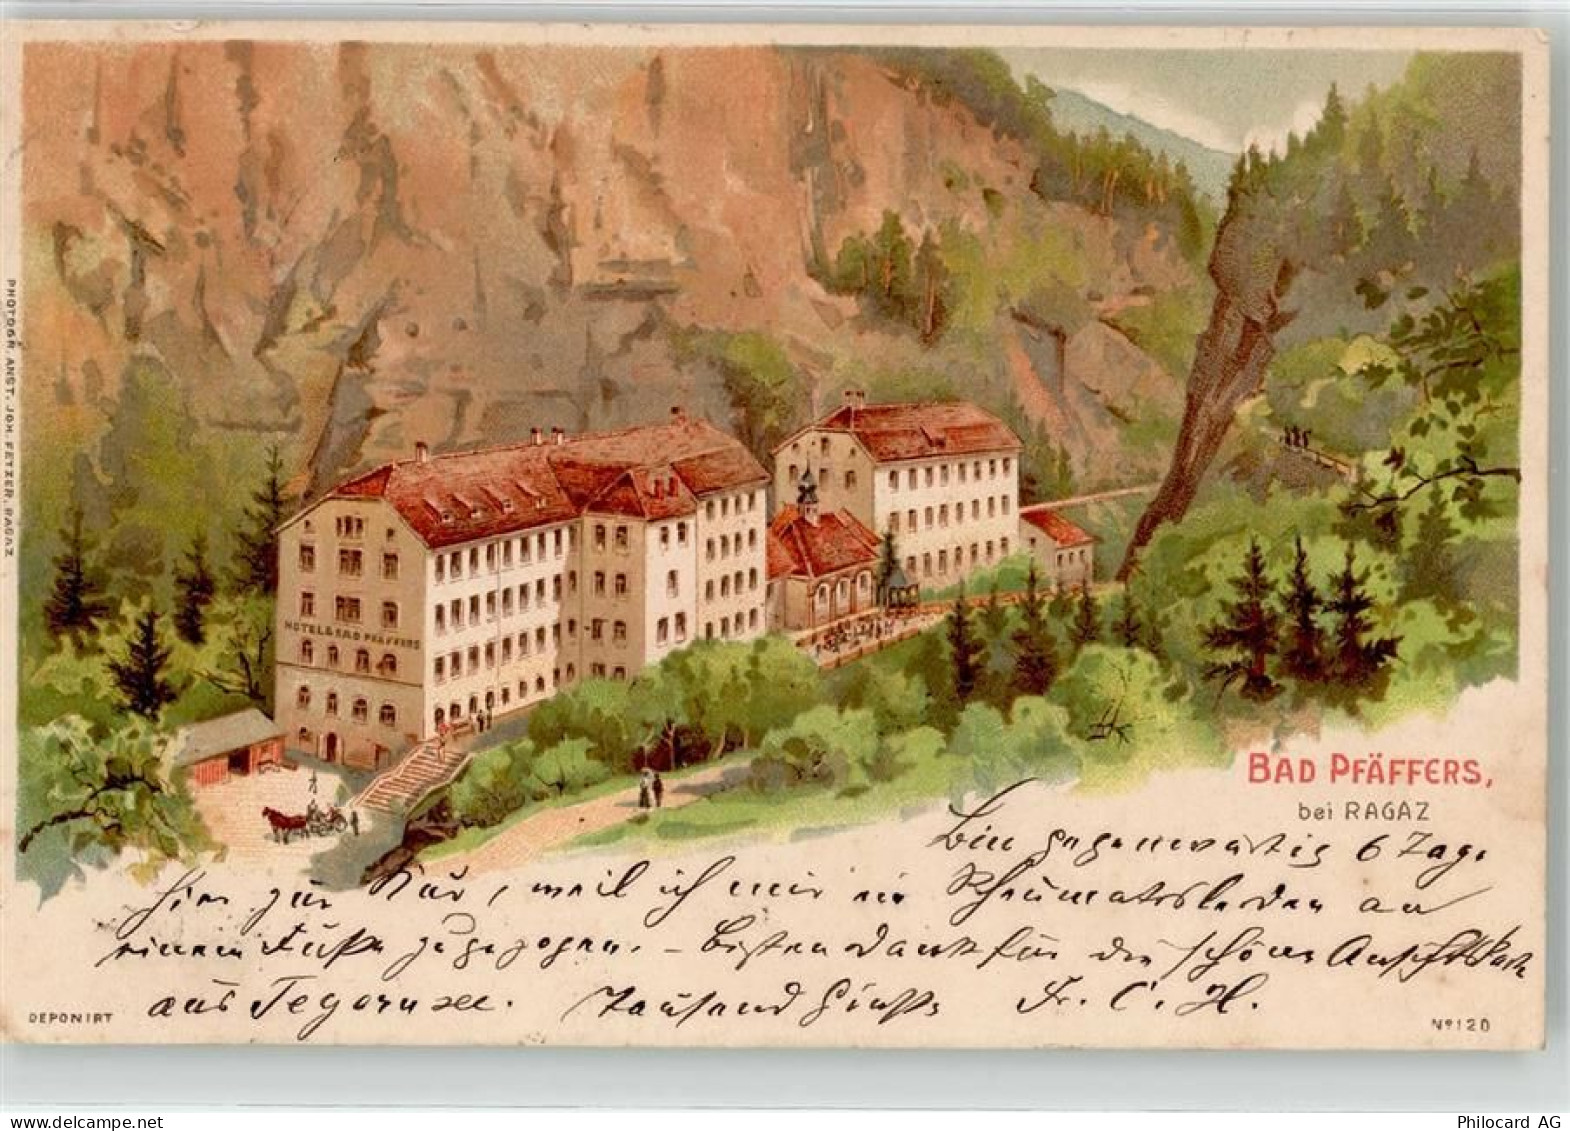 PHOTOGR. ANST. JOH. FETZER, RAGAZ
HOTEL & BAD PFÄFFERS
BAD PFÄFFERS,
bei RAGAZ
Bin gegenwärtig 6 Tage
hier zur Kur, weil ich mir ein Rheumatisleiden an
einem Fuße zugezogen. – Besten Dank für die schöne Ansichtskarte
aus Tegernsee. Tausend Grüße Fr. C. H.
DEPONIRT
Nº 120
delcampe.net
Philocard AG